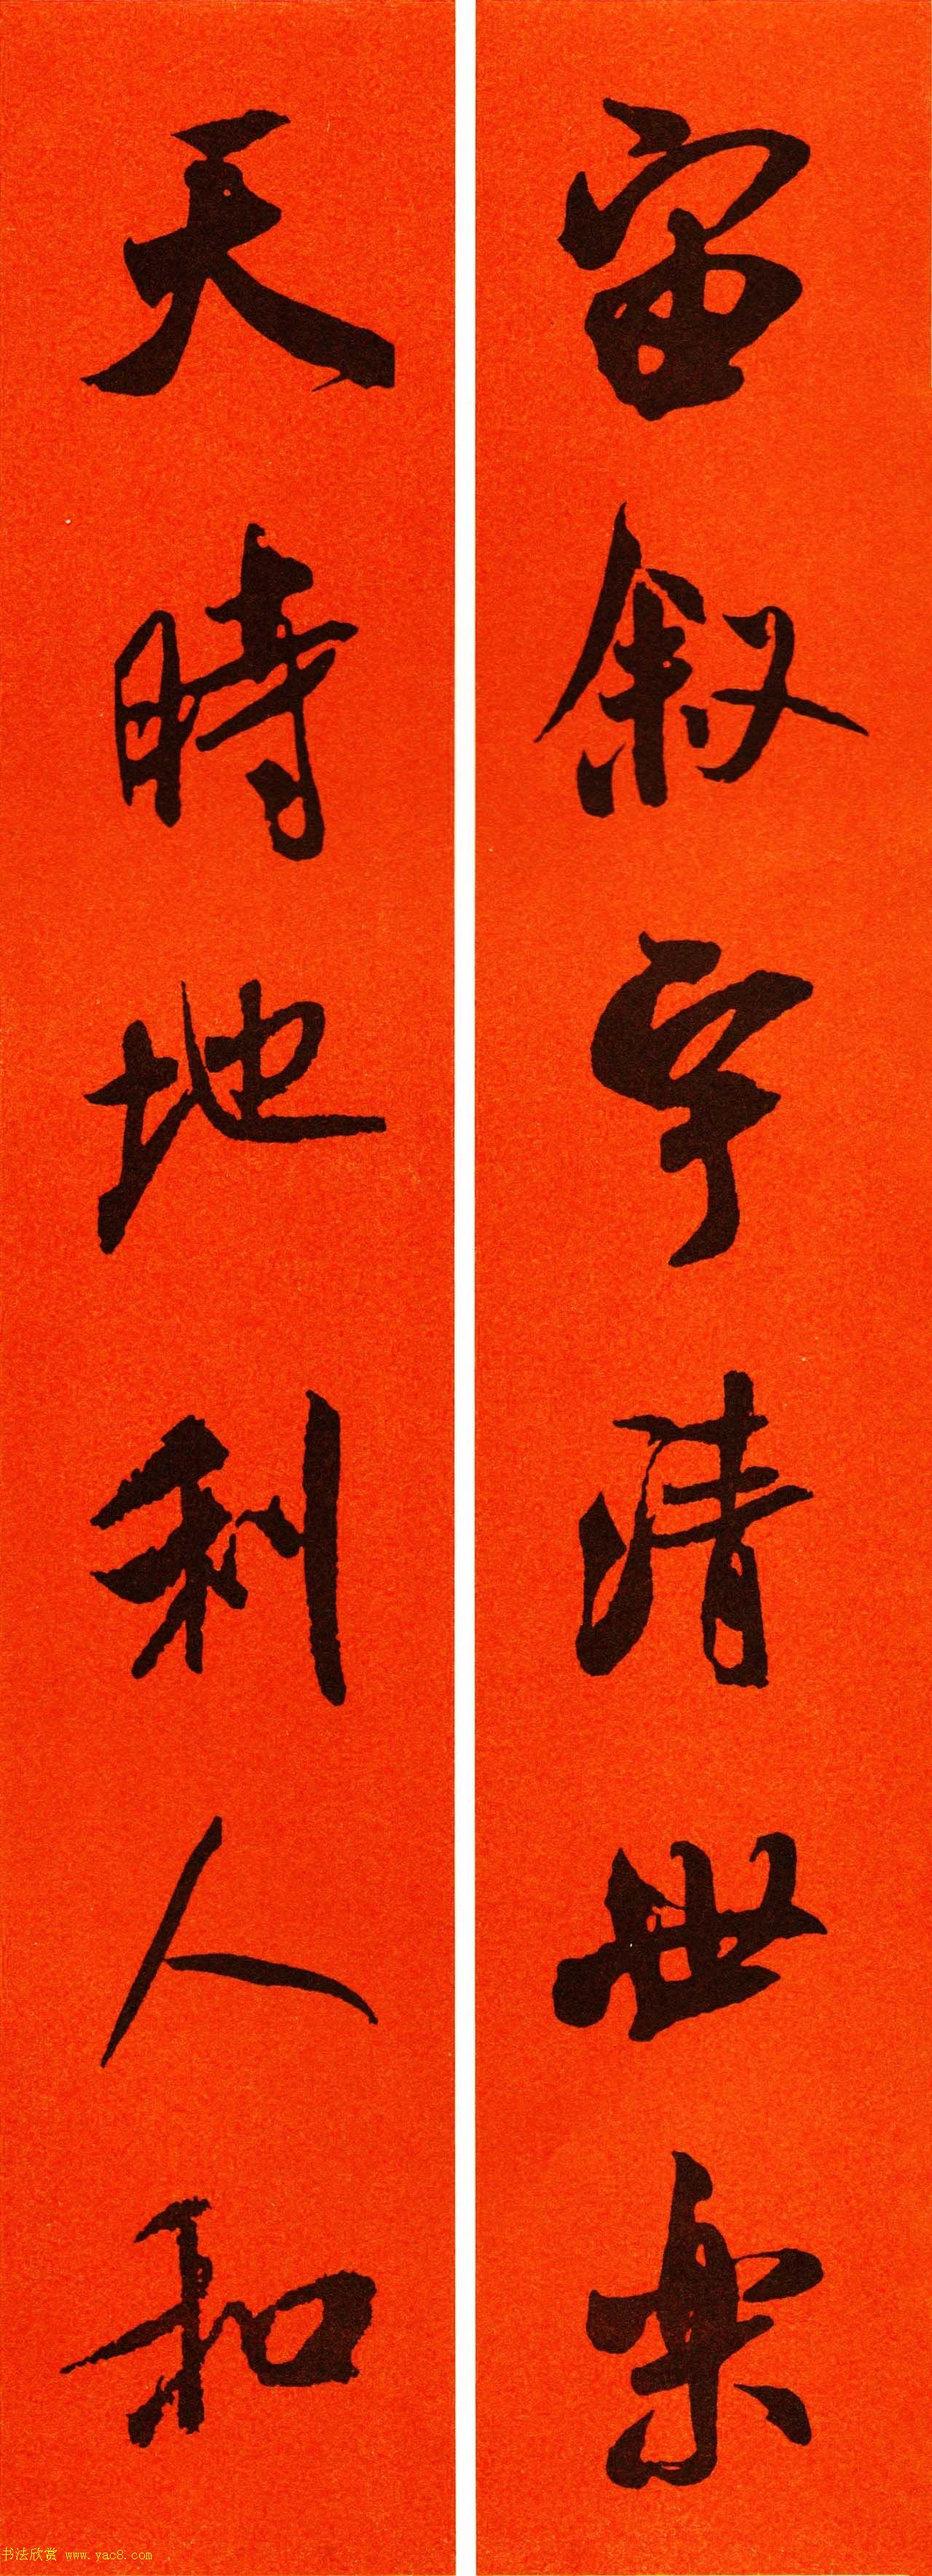 宙叙宇清世樂
天時地利人和
书法欣赏 www.yac8.com